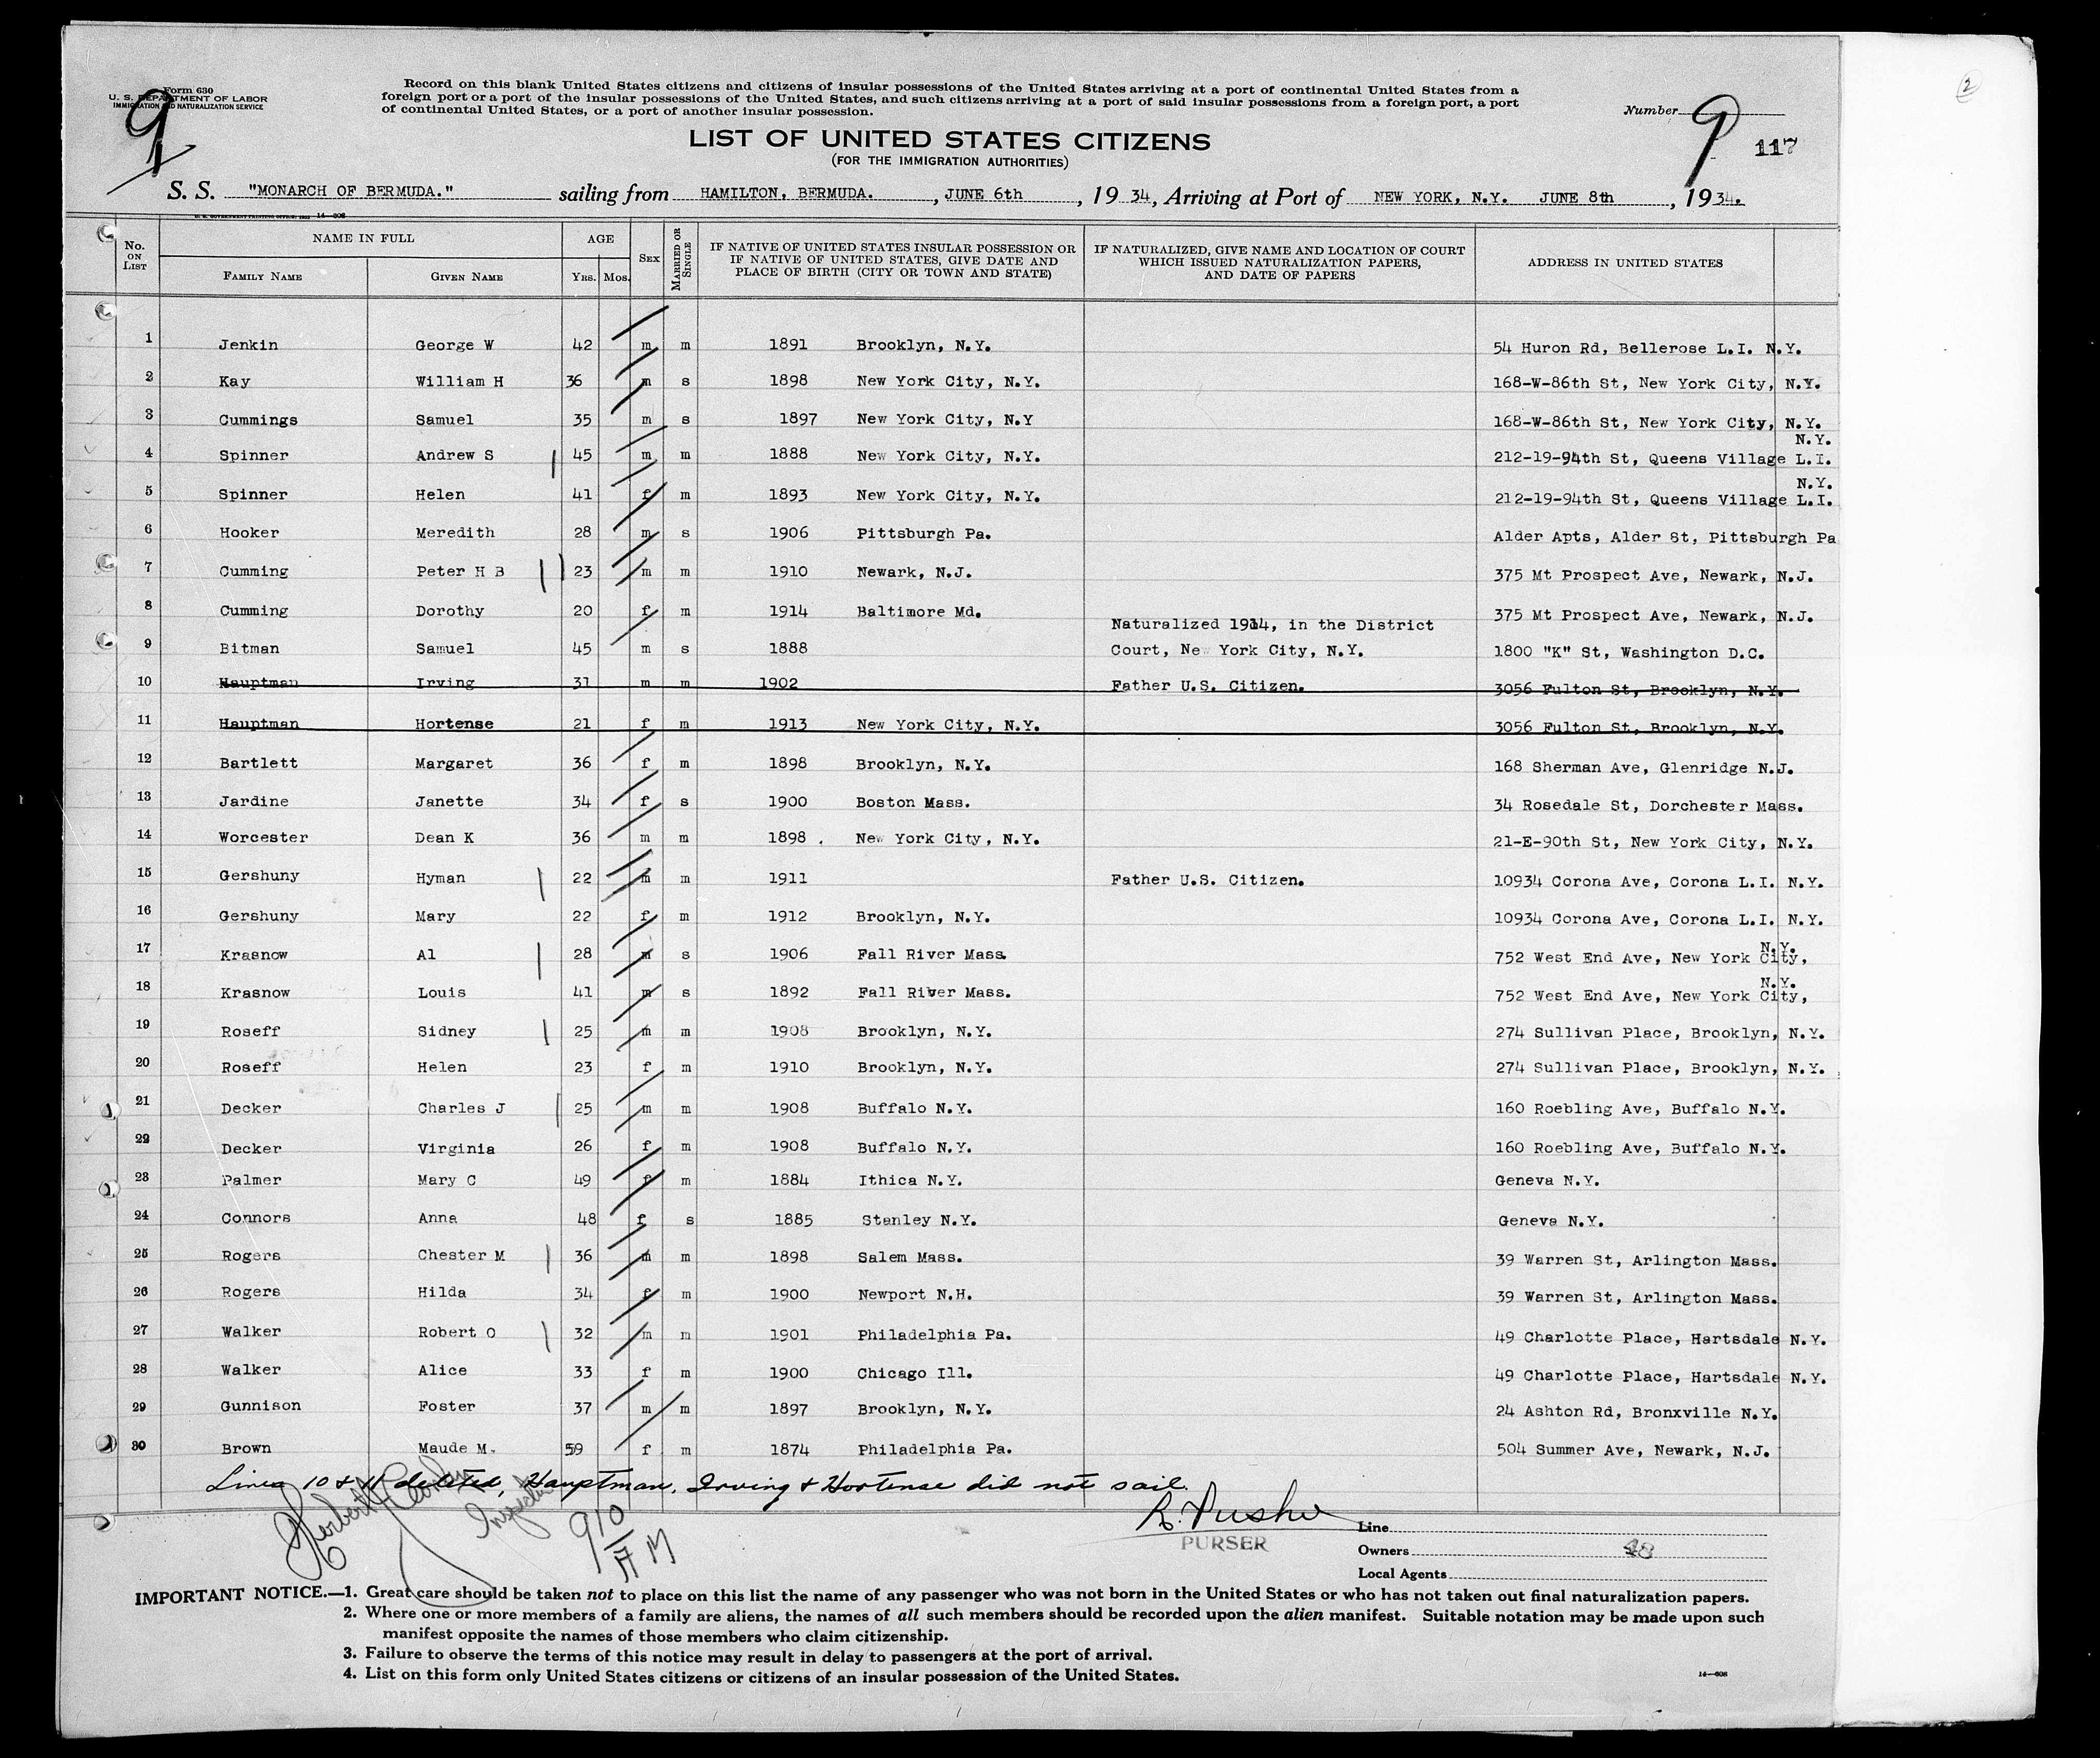 Form 630
U. S. DEPARTMENT OF LABOR
IMMIGRATION AND NATURALIZATION SERVICE
9
Record on this blank United States citizens and citizens of insular possessions of the United States arriving at a port of continental United States from a
foreign port or a port of the insular possessions of the United States, and such citizens arriving at a port of said insular possessions from a foreign port, a port
of continental United States, or a port of another insular possession.
Number 9
117
2
LIST OF UNITED STATES CITIZENS
(FOR THE IMMIGRATION AUTHORITIES)
S. S. "MONARCH OF BERMUDA." sailing from HAMILTON, BERMUDA. , JUNE 6th , 19 34, Arriving at Port of NEW YORK, N.Y. JUNE 8th , 19 34.
No. ON LIST
NAME IN FULL
FAMILY NAME GIVEN NAME
AGE
YRS. MOS.
SEX
MARRIED OR SINGLE
IF NATIVE OF UNITED STATES INSULAR POSSESSION OR
IF NATIVE OF UNITED STATES, GIVE DATE AND
PLACE OF BIRTH (CITY OR TOWN AND STATE)
IF NATURALIZED, GIVE NAME AND LOCATION OF COURT
WHICH ISSUED NATURALIZATION PAPERS,
AND DATE OF PAPERS
ADDRESS IN UNITED STATES
1 Jenkin George W 42 m m 1891 Brooklyn, N.Y. 54 Huron Rd, Bellerose L.I. N.Y.
2 Kay William H 36 m s 1898 New York City, N.Y. 168-W-86th St, New York City, N.Y.
3 Cummings Samuel 35 m s 1897 New York City, N.Y 168-W-86th St, New York City, N.Y.
N.Y.
4 Spinner Andrew S 45 m m 1888 New York City, N.Y. 212-19-94th St, Queens Village L.I.
N.Y.
5 Spinner Helen 41 f m 1893 New York City, N.Y. 212-19-94th St, Queens Village L.I.
6 Hooker Meredith 28 m s 1906 Pittsburgh Pa. Alder Apts, Alder St, Pittsburgh Pa
7 Cumming Peter H B 23 m m 1910 Newark, N.J. 375 Mt Prospect Ave, Newark, N.J.
8 Cumming Dorothy 20 f m 1914 Baltimore Md. 375 Mt Prospect Ave, Newark, N.J.
Naturalized 1914, in the District
9 Bitman Samuel 45 m s 1888 Court, New York City, N.Y. 1800 "K" St, Washington D.C.
10 Hauptman Irving 31 m m 1902 Father U.S. Citizen. 3056 Fulton St, Brooklyn, N.Y.
11 Hauptman Hortense 21 f m 1913 New York City, N.Y. 3056 Fulton St, Brooklyn, N.Y.
12 Bartlett Margaret 36 f m 1898 Brooklyn, N.Y. 168 Sherman Ave, Glenridge N.J.
13 Jardine Janette 34 f s 1900 Boston Mass. 34 Rosedale St, Dorchester Mass.
14 Worcester Dean K 36 m m 1898 New York City, N.Y. 21-E-90th St, New York City, N.Y.
15 Gershuny Hyman 22 m m 1911 Father U.S. Citizen. 10934 Corona Ave, Corona L.I. N.Y.
16 Gershuny Mary 22 f m 1912 Brooklyn, N.Y. 10934 Corona Ave, Corona L.I. N.Y.
N.Y.
17 Krasnow Al 28 m s 1906 Fall River Mass. 752 West End Ave, New York City,
N.Y.
18 Krasnow Louis 41 m s 1892 Fall River Mass. 752 West End Ave, New York City,
19 Roseff Sidney 25 m m 1908 Brooklyn, N.Y. 274 Sullivan Place, Brooklyn, N.Y.
20 Roseff Helen 23 f m 1910 Brooklyn, N.Y. 274 Sullivan Place, Brooklyn, N.Y.
21 Decker Charles J 25 m m 1908 Buffalo N.Y. 160 Roebling Ave, Buffalo N.Y.
22 Decker Virginia 26 f m 1908 Buffalo N.Y. 160 Roebling Ave, Buffalo N.Y.
23 Palmer Mary C 49 f m 1884 Ithica N.Y. Geneva N.Y.
24 Connors Anna 48 f s 1885 Stanley N.Y. Geneva N.Y.
25 Rogers Chester M 36 m m 1898 Salem Mass. 39 Warren St, Arlington Mass.
26 Rogers Hilda 34 f m 1900 Newport N.H. 39 Warren St, Arlington Mass.
27 Walker Robert O 32 m m 1901 Philadelphia Pa. 49 Charlotte Place, Hartsdale N.Y.
28 Walker Alice 33 f m 1900 Chicago Ill. 49 Charlotte Place, Hartsdale N.Y.
29 Gunnison Foster 37 m m 1897 Brooklyn, N.Y. 24 Ashton Rd, Bronxville N.Y.
30 Brown Maude M. 59 f m 1874 Philadelphia Pa. 504 Summer Ave, Newark, N.J.
Lines 10 & 11 deleted, Hauptman, Irving & Hortense did not sail.
Herbert
Inspector
910
AM
PURSER
Line
Owners 48
Local Agents
IMPORTANT NOTICE.—1. Great care should be taken not to place on this list the name of any passenger who was not born in the United States or who has not taken out final naturalization papers.
2. Where one or more members of a family are aliens, the names of all such members should be recorded upon the alien manifest. Suitable notation may be made upon such
manifest opposite the names of those members who claim citizenship.
3. Failure to observe the terms of this notice may result in delay to passengers at the port of arrival.
4. List on this form only United States citizens or citizens of an insular possession of the United States.
14—608